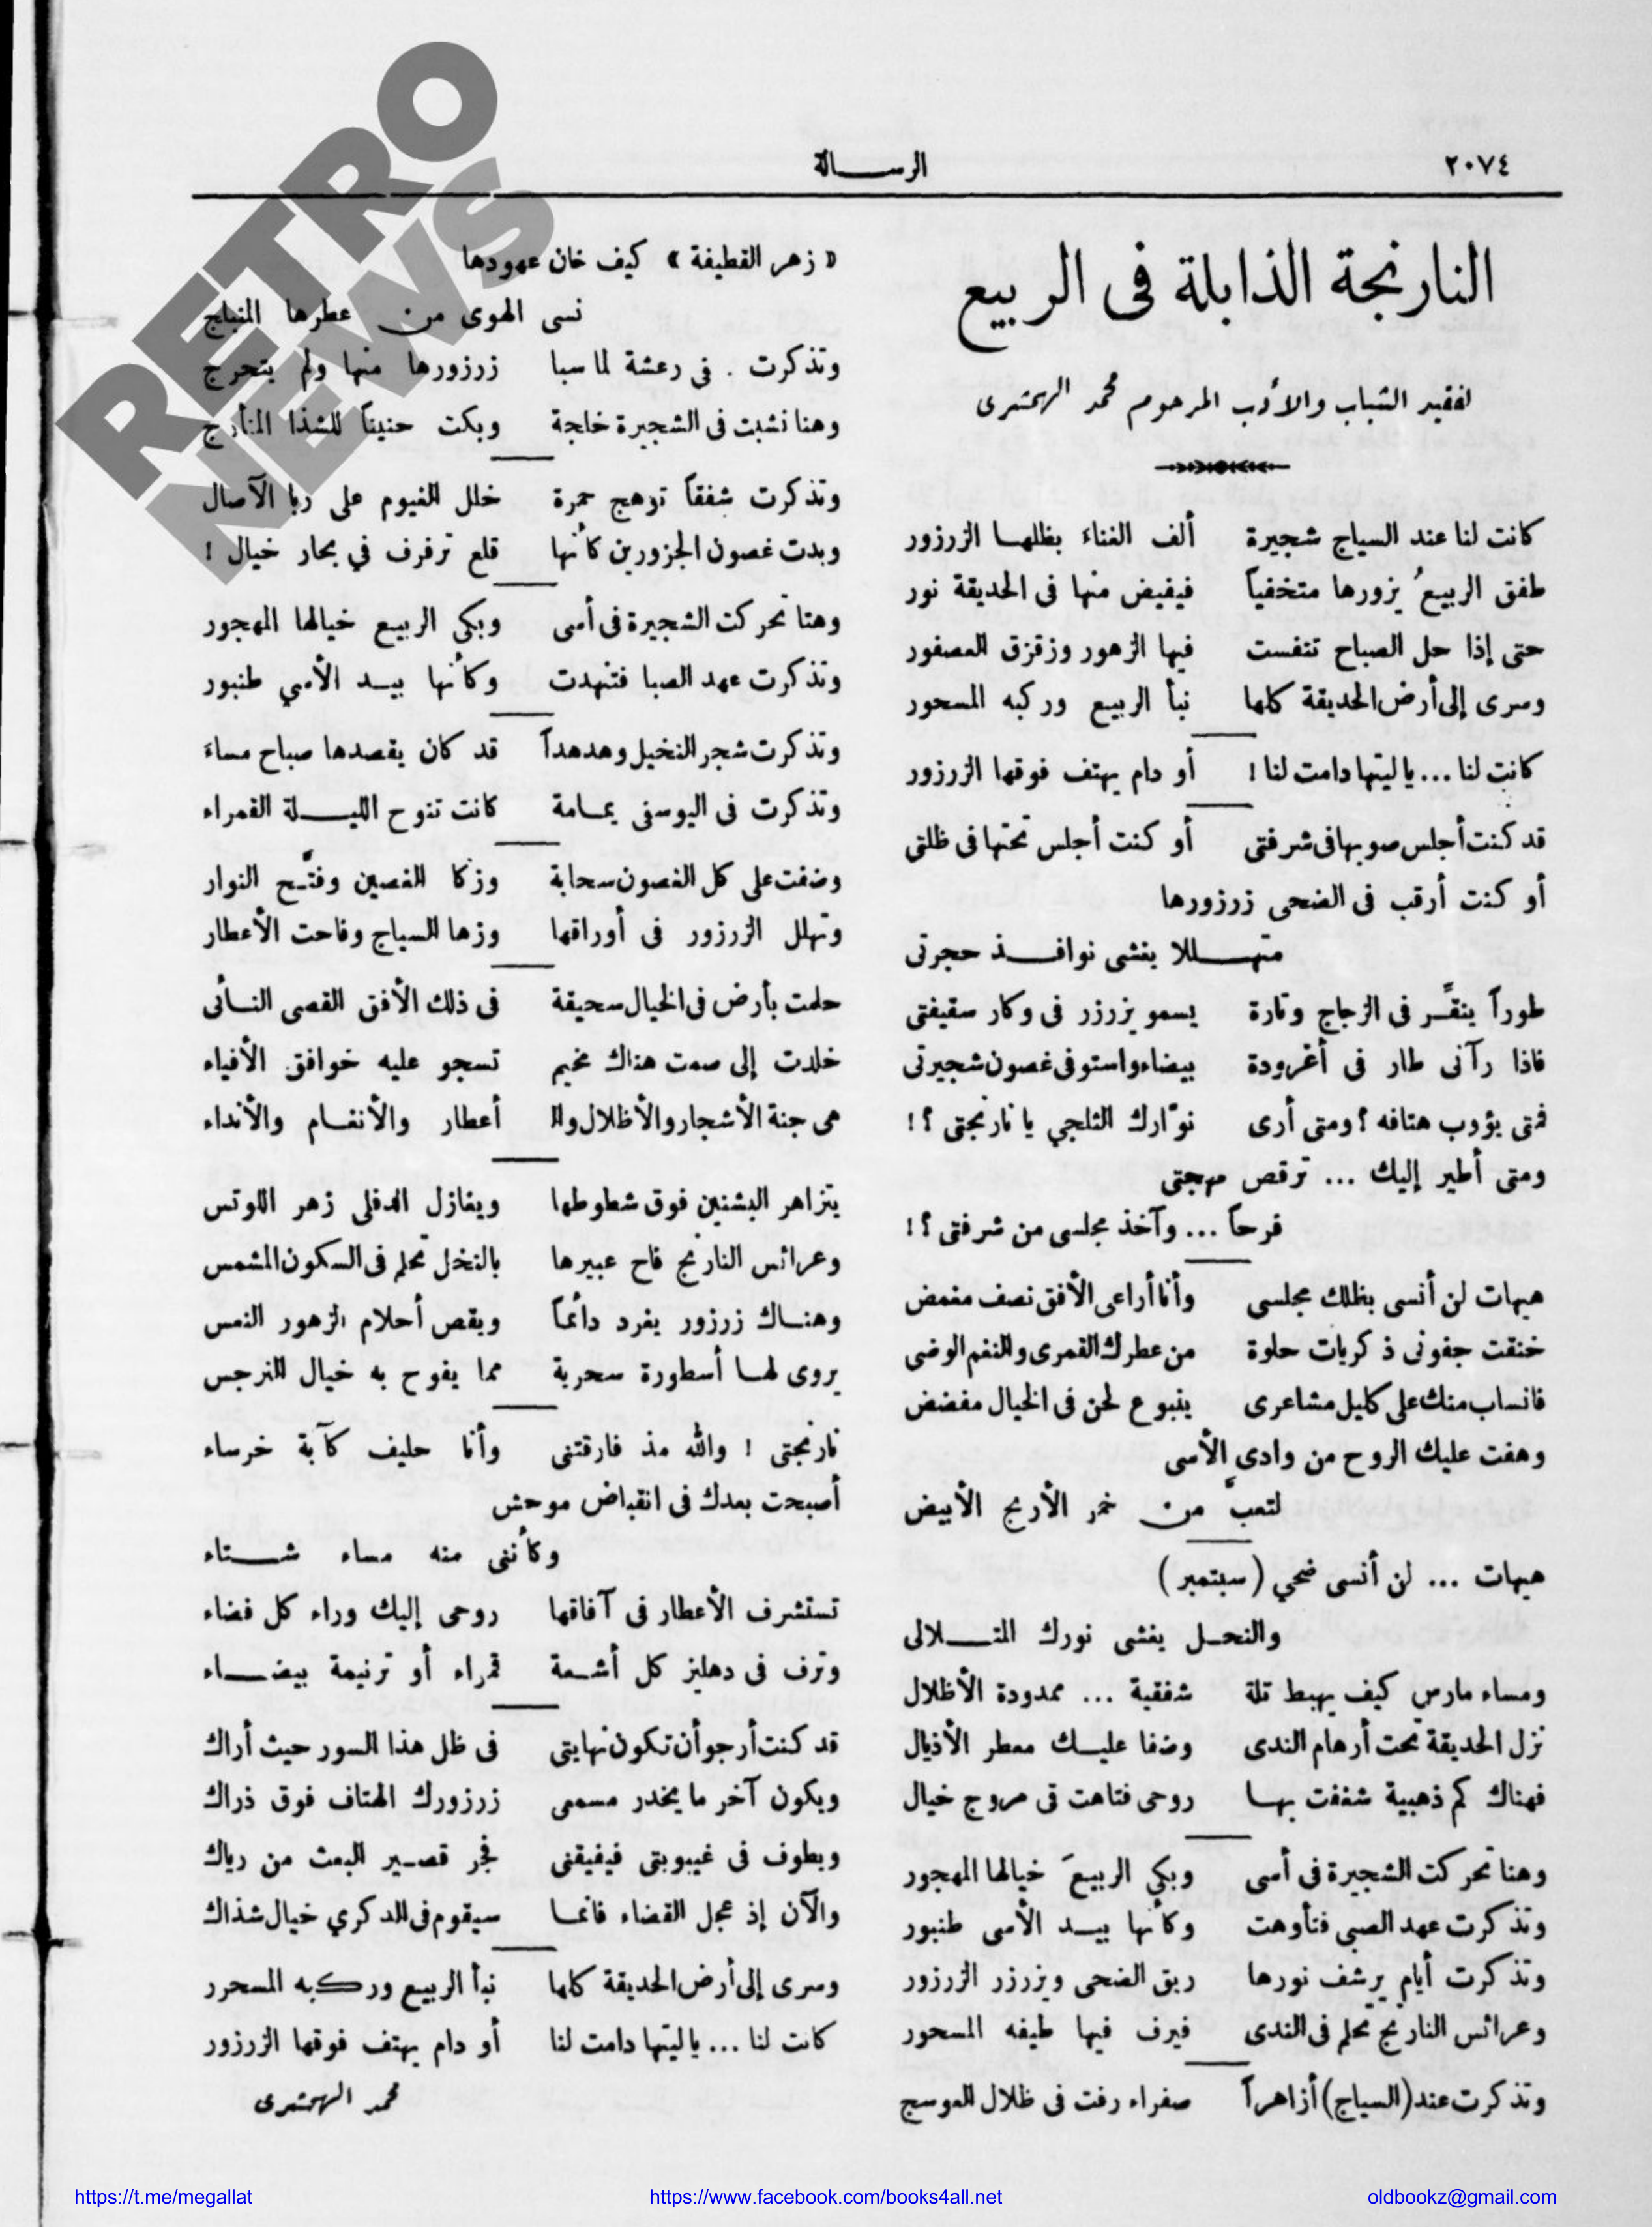 ٢٠٧٤
الرسالة
النارنجة الذابلة فى الربيع
لفقيد الشباب والأدب المرحوم محمد الهمشرى
كانت لنا عند السياج شجيرة ألف الغناء بظلها الزرزور
طفق الربيعُ يزورها متخفياً فيفيض منها فى الحديقة نور
حتى إذا حل الصباح تنفست فيها الزهور وزقزق العصفور
وسرى إلى أرض الحديقة كلها نبأ الربيع وركبه المسحور
كانت لنا ... يا ليتها دامت لنا ! أو دام يهتف فوقها الزرزور
قد كنت أجلس صوبها فى شرفتى أو كنت أجلس تحتها فى ظلتى
أو كنت أرقب فى الضحى زرزورها
متهللا يغشى نوافذ حجرتى
طوراً ينقِّر فى الزجاج وتارة يسمو يزرزر فى وكار سقيفتى
فاذا رآنى طار فى أغرودة بيضاء واستوفى غصون شجيرتى
فمتى يؤوب هتافه ؟ ومتى أرى نوّارك الثلجي يا نارنجتى ؟ !
ومتى أطير إليك ... ترقص مهجتى
فرحاً ... وآخذ مجلسى من شرفتى ؟ !
هيهات لن أنسى بظلك مجلسى وأنا أراعى الأفق نصف مغمض
خنقت جفونى ذكريات حلوة من عطرك القمرى والنغم الوضى
فانساب منك على كليل مشاعرى ينبوع لحن فى الخيال مفضض
وهفت عليك الروح من وادى الأسى
لتعبَّ من خمر الأريج الأبيض
هيهات ... لن أنسى ضحي (سبتمبر)
والنحل يغشى نورك المتلالى
ومساء مارس كيف يهبط تلة شفقية ... ممدودة الأظلال
نزل الحديقة تحت أرهام الندى وضفا عليك معطر الأذيال
فهناك كم ذهبية شغفت بها روحى فتاهت فى مروج خيال
وهنا تحركت الشجيرة فى أسى وبكي الربيعَ خيالها المهجور
وتذكرت عهد الصبى فتأوهت وكأنها بيد الأسى طنبور
وتذكرت أيام يرشف نورها ريق الضحى ويزرزر الزرزور
وعرائس النارنج تحلم فى الندى فيرف فيها طيفه المسحور
وتذكرت عند (السياج) أزاهراً صفراء رفت فى ظلال العوسج
« زهر القطيفة » كيف خان عهودها
نسى الهوى من عطرها المنبلج
وتذكرت . فى رعشة لما سبا زرزورها منها ولم يتحرج
وهنا نشبت فى الشجيرة خلجة وبكت حنيناً للشذا المتأرج
وتذكرت شفقاً توهج حمرة خلل الغيوم على ربا الآصال
وبدت غصون الجزورين كأنها قلع ترفرف في بحار خيال !
وهنا تحركت الشجيرة فى أسى وبكي الربيع خيالها المهجور
وتذكرت عهد الصبا فتنهدت وكأنها بيد الأسي طنبور
وتذكرت شجر النخيل وهدهداً قد كان يقصدها صباح مساءَ
وتذكرت فى اليوسفى يمامة كانت تنوح الليلة القمراء
وضفت على كل الغصون سحابة وزكا الغصين وفتَّح النوار
وتهلل الزرزور فى أوراقها وزها السياج وفاحت الأعطار
حلمت بأرض فى الخيال سحيقة فى ذلك الأفق القصى النائى
خلدت إلى صمت هناك مخيم تسجو عليه خوافق الأفياء
هى جنة الأشجار والأظلال والـ أعطار والأنغام والأنداء
يتزاهر البشنين فوق شطوطها ويغازل الدفلى زهر اللوتس
وعرائس النارنج فاح عبيرها بالنخل تحلم فى السكون المشمس
وهناك زرزور يغرد دائماً ويقص أحلام الزهور النعس
يروى لها أسطورة سحرية مما يفوح به خيال النرجس
نارنجتى ! والله مذ فارقتنى وأنا حليف كآبة خرساء
أصبحت بعدك فى انقباض موحش
وكأننى منه مساء شتاء
تستشرف الأعطار فى آفاقها روحى إليك وراء كل فضاء
وترف فى دهليز كل أشعة قمراء أو ترنيمة بيضاء
قد كنت أرجو أن تكون نهايتى فى ظل هذا السور حيث أراك
ويكون آخر ما يخدر مسمعى زرزورك الهتاف فوق ذراك
ويطوف فى غيبوبتى فيفيقنى فجر قصير البعث من رياك
والآن إذ عجل القضاء فانما سيقوم فى الدكري خيال شذاك
وسرى إلى أرض الحديقة كلها نبأ الربيع وركبه المسحرر
كانت لنا ... يا ليتها دامت لنا أو دام يهتف فوقها الزرزور
محمد الهمشرى
RETRO
NEWS
https://t.me/megallat
https://www.facebook.com/books4all.net
oldbookz@gmail.com